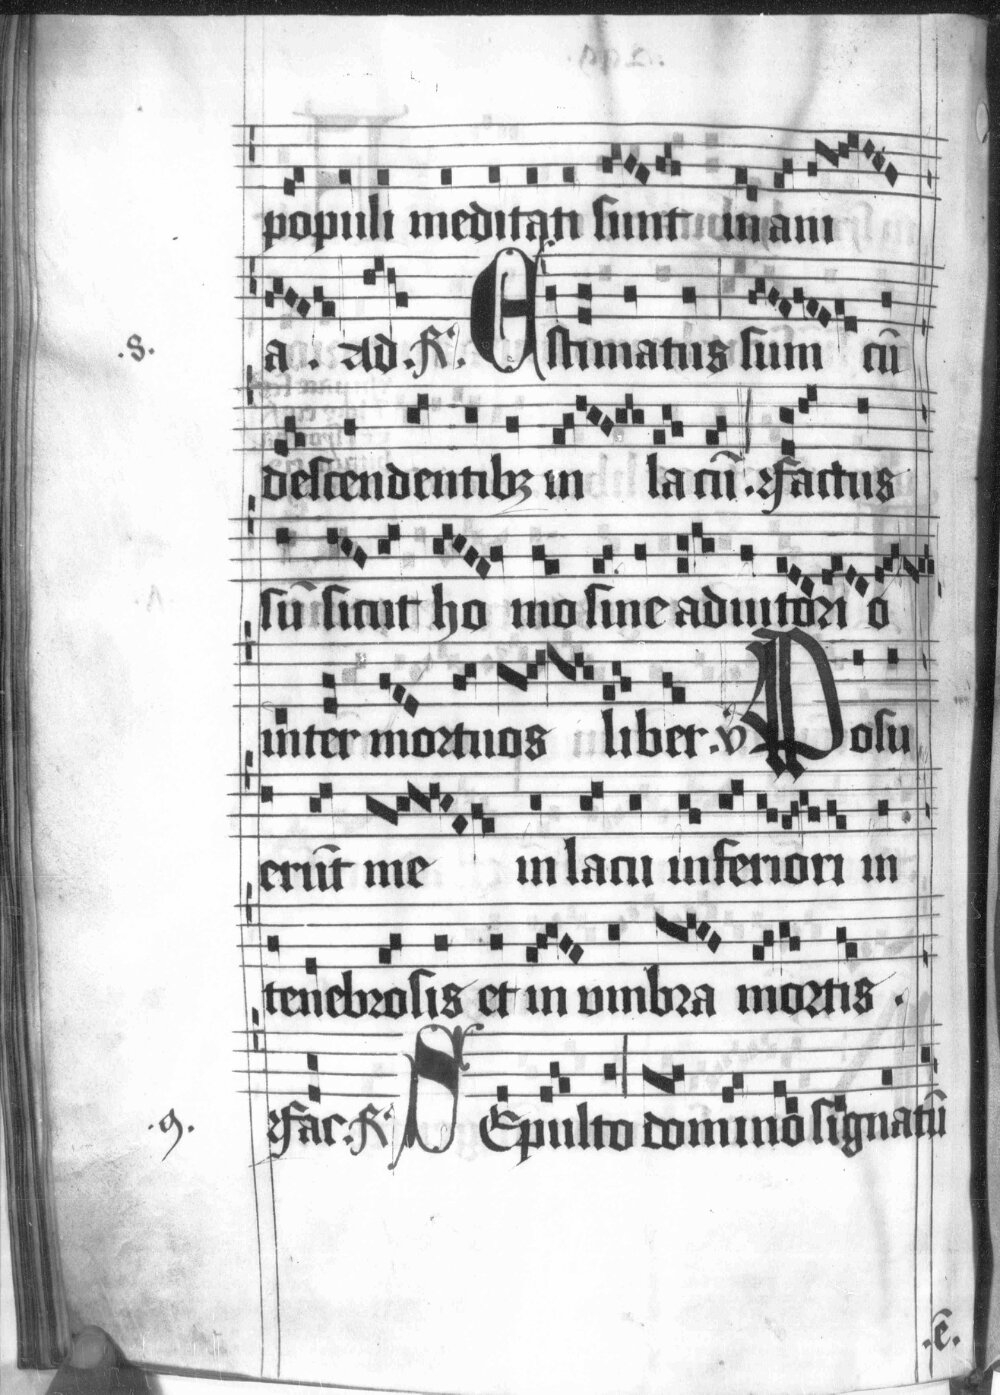 populi meditati sunt inani
a . Ad . R̃ . Estimatus sum cū
.8.
descendentibꝫ in lacū . Factus
sū sicut homo sine adiutorio
inter mortuos liber . v̇ Posu
erūt me in lacu inferiori in
tenebrosis et in vmbra mortis .
Fac . R̃ SEpulto domino signatū
.9.
.ẽ.